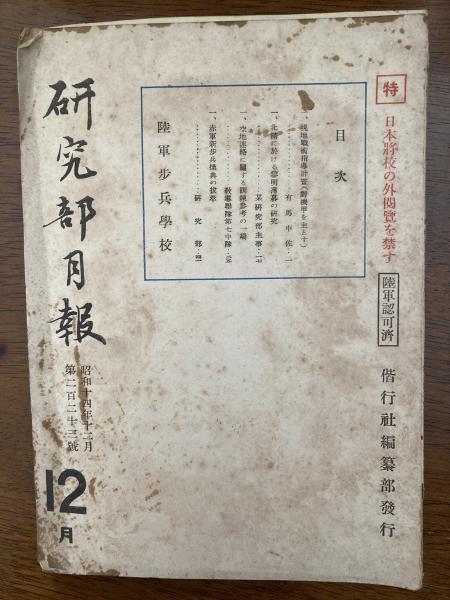 特
日本將校の外閲覽を禁ず
陸軍認可濟
偕行社編纂部發行
目次
一、現地戰術指導計畫(對機甲を主とす)
有馬中佐・一
一、北滿に於ける黎明薄暮の研究
某研究部主事・一七
一、空地連絡に關する訓練參考の一端
教導聯隊第七中隊・
一、赤軍新歩兵操典の拔萃
研究部・
陸軍步兵學校
研究部月報
昭和十四年十二月
第二百二十三號
12月